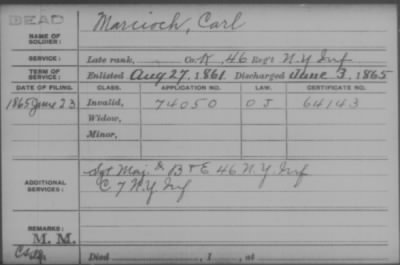 DEAD
NAME OF SOLDIER: Marcioch, Carl
SERVICE: Late rank, Co. K, 46 Reg't N.Y. Inf
TERM OF SERVICE: Enlisted Aug 27, 1861 Discharged June 3, 1865
DATE OF FILING. CLASS. APPLICATION NO. LAW. CERTIFICATE NO.
1865 June 23 Invalid, 74050 O J 64143
Widow,
Minor,
ADDITIONAL SERVICES: Sgt Maj. & B + E 46 N.Y. Inf
C 7 N.Y. Inf
REMARKS:
M. M.
Died , 1 , at